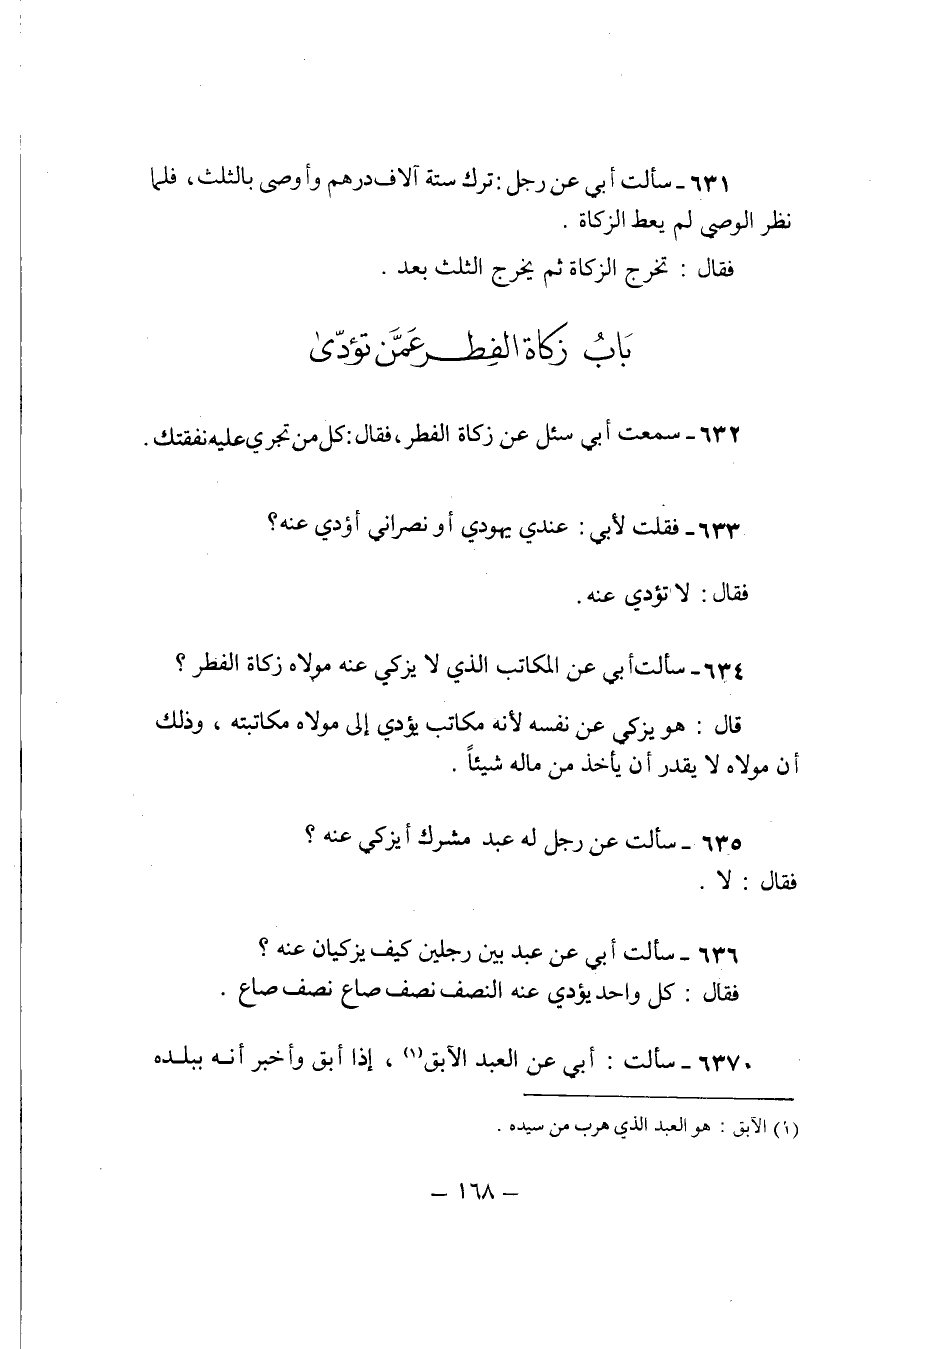 ٦٣١ ـ سألت أبي عن رجل : ترك ستة آلاف درهم وأوصى بالثلث ، فلما
نظر الوصي لم يعط الزكاة .
فقال : تخرج الزكاة ثم يخرج الثلث بعد .
بَابُ زكاة الفِطر عَمَّن تؤدّىٰ
٦٣٢ ـ سمعت أبي سئل عن زكاة الفطر ، فقال : كل من تجري عليه نفقتك .
٦٣٣ ـ فقلت لأبي : عندي يهودي أو نصراني أؤدي عنه؟
فقال : لا تؤدي عنه .
٦٣٤ ـ سألت أبي عن المكاتب الذي لا يزكي عنه مولاه زكاة الفطر ؟
قال : هو يزكي عن نفسه لأنه مكاتب يؤدي إلى مولاه مكاتبته ، وذلك
أن مولاه لا يقدر أن يأخذ من ماله شيئاً .
٦٣٥ ـ سألت عن رجل له عبد مشرك أيزكي عنه ؟
فقال : لا .
٦٣٦ ـ سألت أبي عن عبد بين رجلين كيف يزكيان عنه ؟
فقال : كل واحد يؤدي عنه النصف نصف صاع نصف صاع .
٦٣٧٠ ـ سألت : أبي عن العبد الآبق(١) ، إذا أبق وأخبر أنه ببلده
(١) الآبق : هو العبد الذي هرب من سيده .
– ١٦٨ –